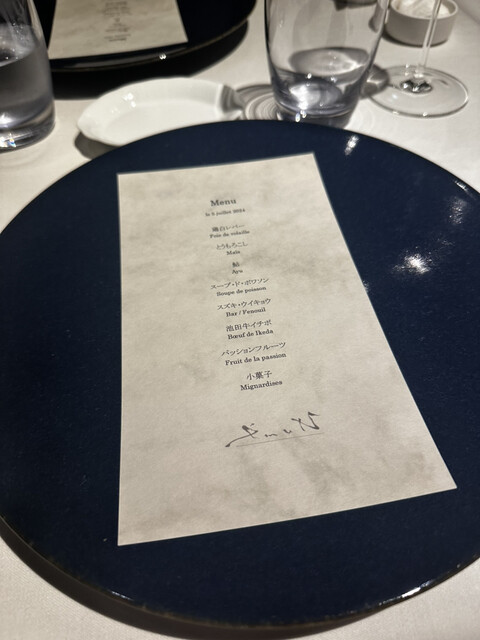 Menu
le 5 juillet 2024
Foie de volaille
とうもろこし
Maïs
鮎
Ayu
スープ・ド・ポワソン
Soupe de poisson
スズキ・ウイキョウ
Bar / Fenouil
池田牛イチボ
Bœuf de Ikeda
パッションフルーツ
Fruit de la passion
小菓子
Mignardises